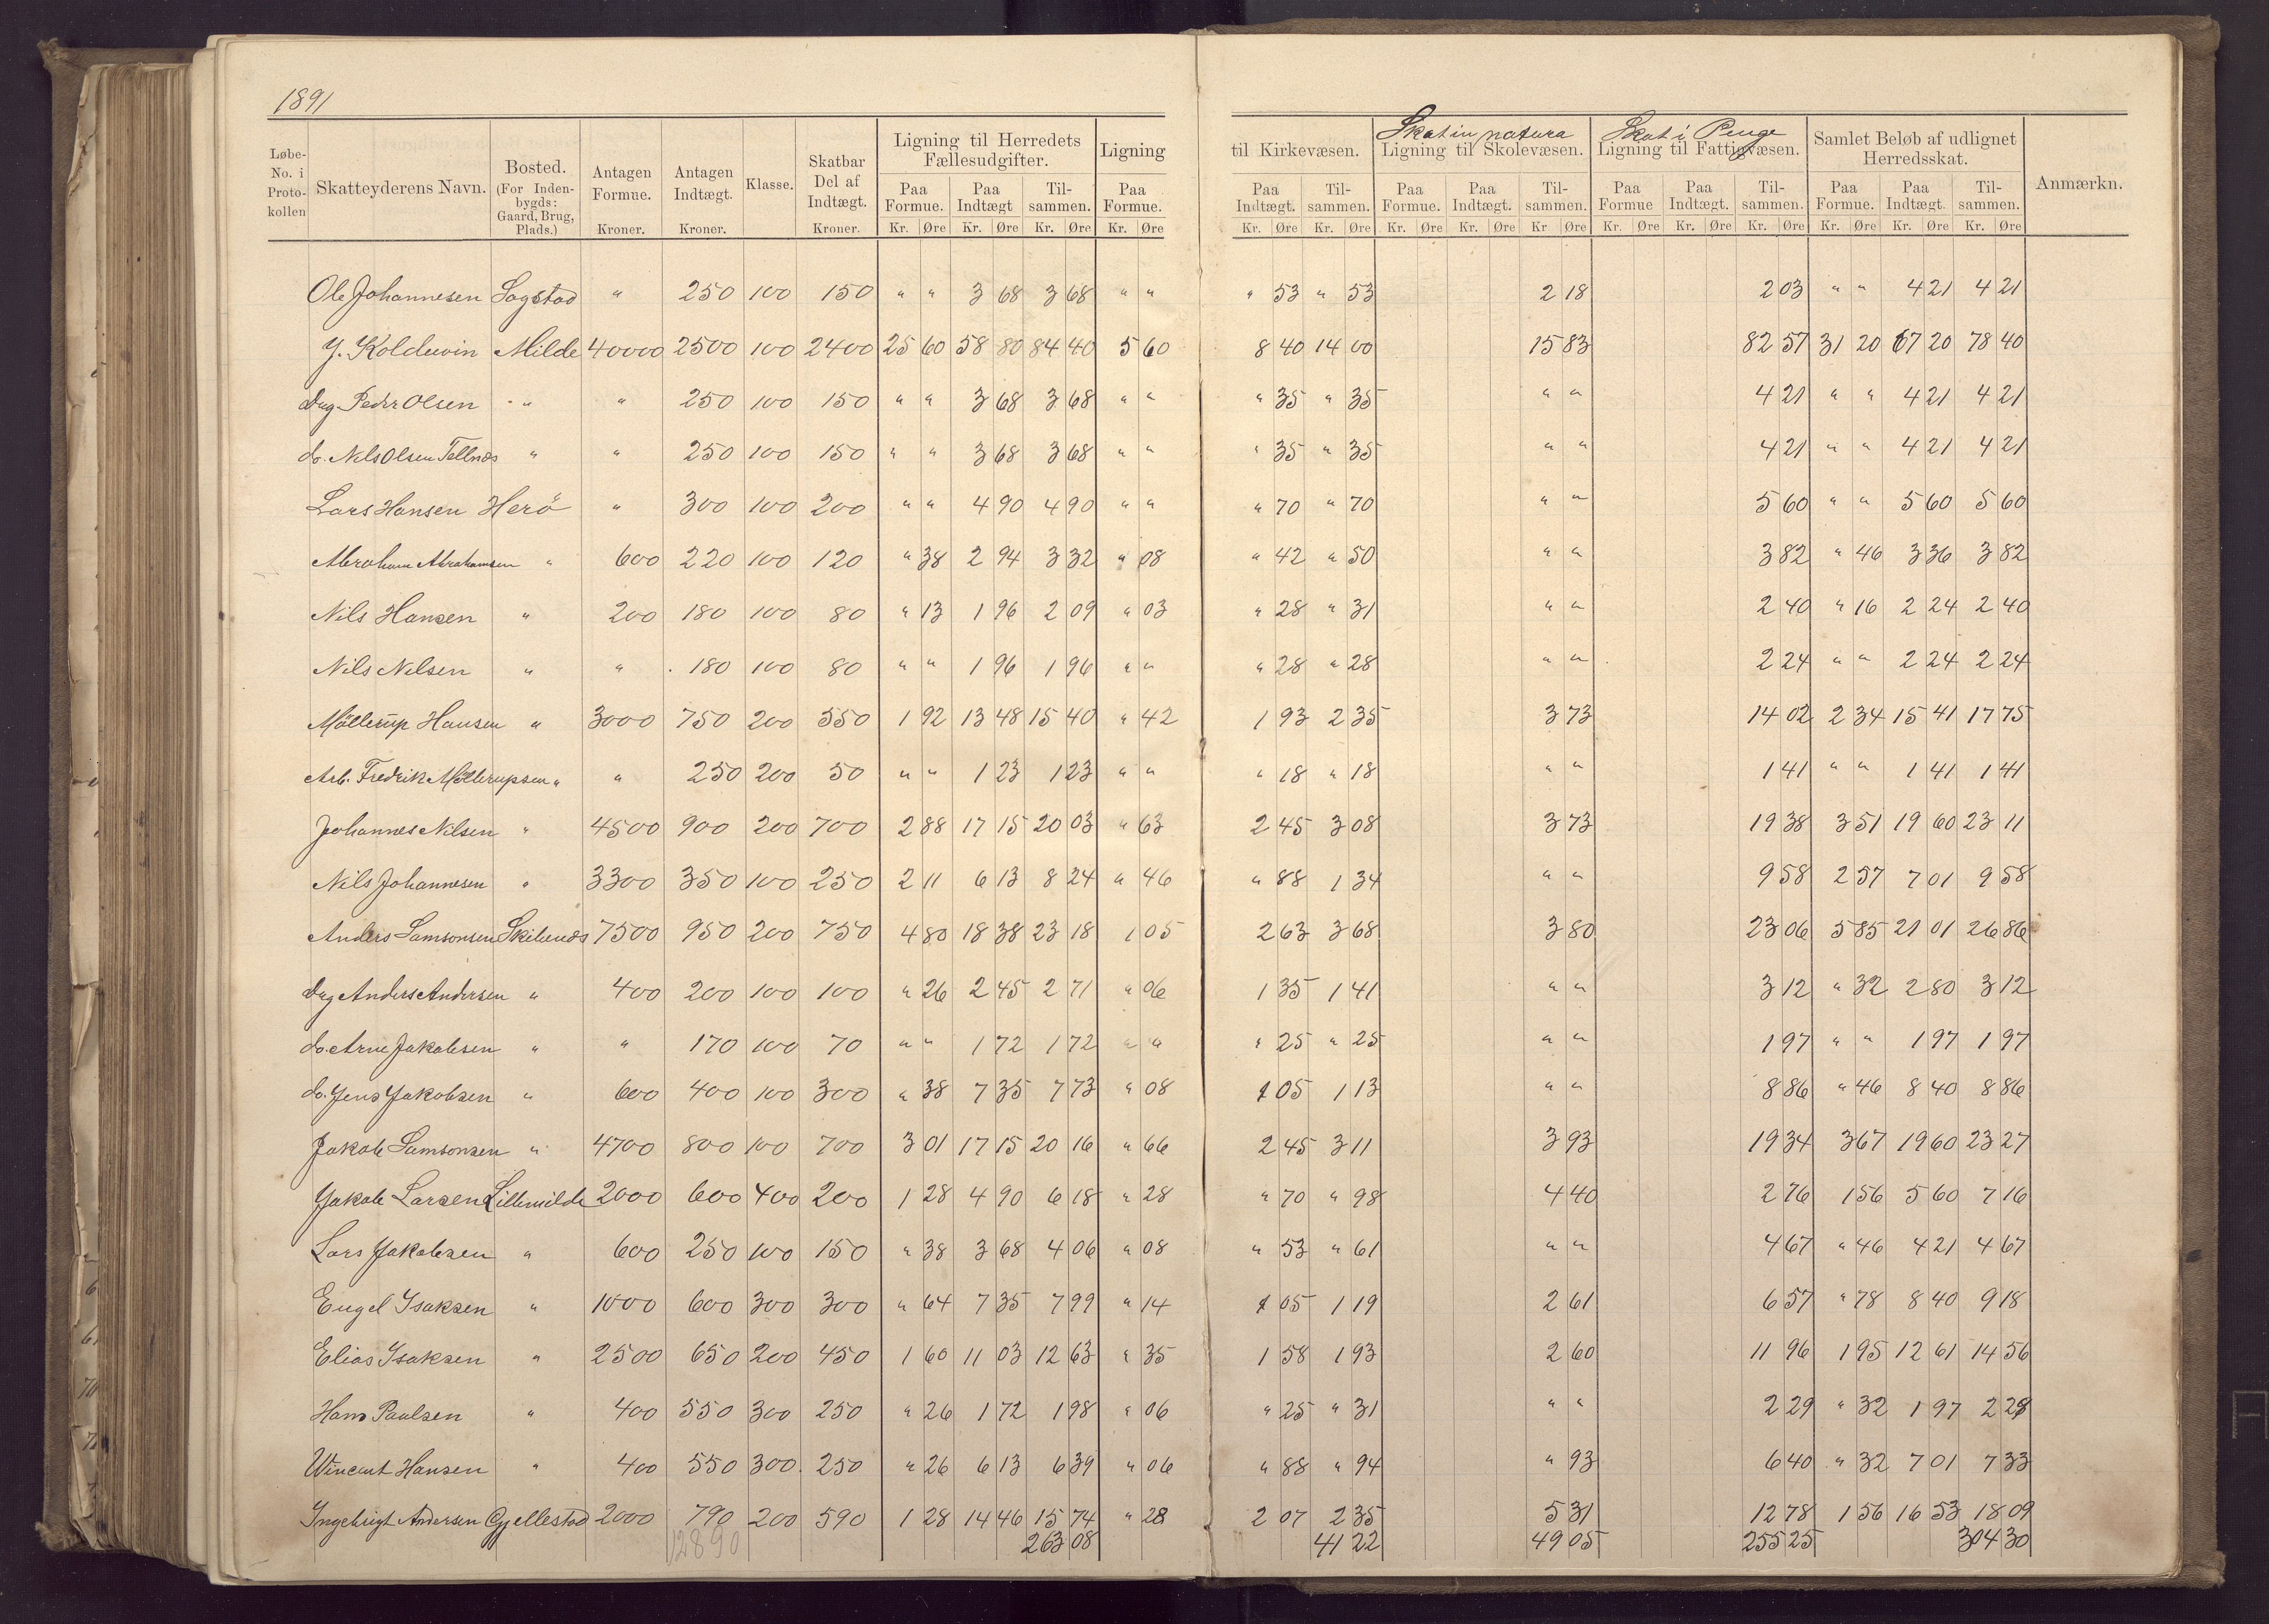 1891
Løbe-No. i Proto-kollen | Skatteyderens Navn. | Bosted. (For Inden-bygds: Gaard, Brug, Plads.) | Antagen Formue. Kroner. | Antagen Indtægt. Kroner. | Klasse. | Skatbar Del af Indtægt. Kroner. | Ligning til Herredets Fællesudgifter. Paa Formue. Kr. Øre | Paa Indtægt Kr. Øre | Til-sammen. Kr. Øre | Ligning Paa Formue. Kr. Øre | til Kirkevæsen. Paa Indtægt. Kr. Øre | Til-sammen. Kr. Øre | Skat in natura Ligning til Skolevæsen. Paa Formue. Kr. Øre | Paa Indtægt. Kr. Øre | Til-sammen. Kr Øre | Skat i Penge Ligning til Fattigvæsen. Paa Formue Kr. Øre | Paa Indtægt. Kr. Øre | Til-sammen. Kr. Øre | Samlet Beløb af udlignet Herredsskat. Paa Formue. Kr. Øre | Paa Indtægt. Kr. Øre | Til-sammen. Kr. Øre | Anmærkn.
Ole Johannesen Sagstad " 250 100 150 " " 3 68 3 68 " " " 53 " 53 2 18 2 03 " " 4 21 4 21
J. Koldewin Milde 40000 2500 100 2400 25 60 58 80 84 40 5 60 8 40 14 00 15 83 82 57 31 20 67 20 78 40
Dug Peder Olsen " " 250 100 150 " " 3 68 3 68 " " " 35 " 35 " " 4 21 " " 4 21 4 21
do. Nils Olsen Tellnæs " " 250 100 150 " " 3 68 3 68 " " " 35 " 35 " " 4 21 " " 4 21 4 21
Lars Hansen Herö " 300 100 200 " " 4 90 4 90 " " " 70 " 70 " " 5 60 " " 5 60 5 60
Abraham Abrahamsen " 600 220 100 120 " 38 2 94 3 32 " 08 " 42 " 50 " " 3 82 " 46 3 36 3 82
Nils Hansen " 200 180 100 80 " 13 1 96 2 09 " 03 " 28 " 31 " " 2 40 " 16 2 24 2 40
Nils Nilsen " " 180 100 80 " " 1 96 1 96 " " " 28 " 28 " " 2 24 " " 2 24 2 24
Möllerup Hansen " 3000 750 200 550 1 92 13 48 15 40 " 42 1 93 2 35 3 73 14 02 2 34 15 41 17 75
Arb. Fredrik Möllerupsen " " 250 200 50 " " 1 23 1 23 " " " 18 " 18 " " 1 41 " " 1 41 1 41
Johannes Nilsen " 4500 900 200 700 2 88 17 15 20 03 " 63 2 45 3 08 3 73 19 38 3 51 19 60 23 11
Nils Johannesen " 3300 350 100 250 2 11 6 13 8 24 " 46 " 88 1 34 " " 9 58 2 57 7 01 9 58
Anders Samsonsen Skibenæs 7500 950 200 750 4 80 18 38 23 18 1 05 2 63 3 68 3 80 23 06 5 85 21 01 26 86
Dug Anders Andersen " 400 200 100 100 " 26 2 45 2 71 " 06 1 35 1 41 " " 3 12 " 32 2 80 3 12
do. Arne Jakobsen " " 170 100 70 " " 1 72 1 72 " " " 25 " 25 " " 1 97 " " 1 97 1 97
do. Jens Jakobsen " 600 400 100 300 " 38 7 35 7 73 " 08 1 05 1 13 " " 8 86 " 46 8 40 8 86
Jakob Samsonsen " 4700 800 100 700 3 01 17 15 20 16 " 66 2 45 3 11 3 93 19 34 3 67 19 60 23 27
Jakob Larsen Lillemilde 2000 600 400 200 1 28 4 90 6 18 " 28 " 70 " 98 4 40 2 76 1 56 5 60 7 16
Lars Jakobsen " 600 250 100 150 " 38 3 68 4 06 " 08 " 53 " 61 " " 4 67 " 46 4 21 4 67
Engel Isaksen " 1000 600 300 300 " 64 7 35 7 99 " 14 1 05 1 19 2 61 6 57 " 78 8 40 9 18
Elias Isaksen " 2500 650 200 450 1 60 11 03 12 63 " 35 1 58 1 93 2 60 11 96 1 95 12 61 14 56
Hans Paulsen " 400 550 300 250 " 26 1 72 1 98 " 06 " 25 " 31 " " 2 29 " 32 1 97 2 29
Wincent Hansen " 400 550 300 250 " 26 6 13 6 39 " 06 " 88 " 94 " 93 6 40 " 32 7 01 7 33
Ingebrigt Andersen Gjellestad 2000 790 200 590 1 28 14 46 15 74 " 28 2 07 2 35 5 31 12 78 1 56 16 53 18 09
12890 263 08 41 22 49 05 255 25 304 30